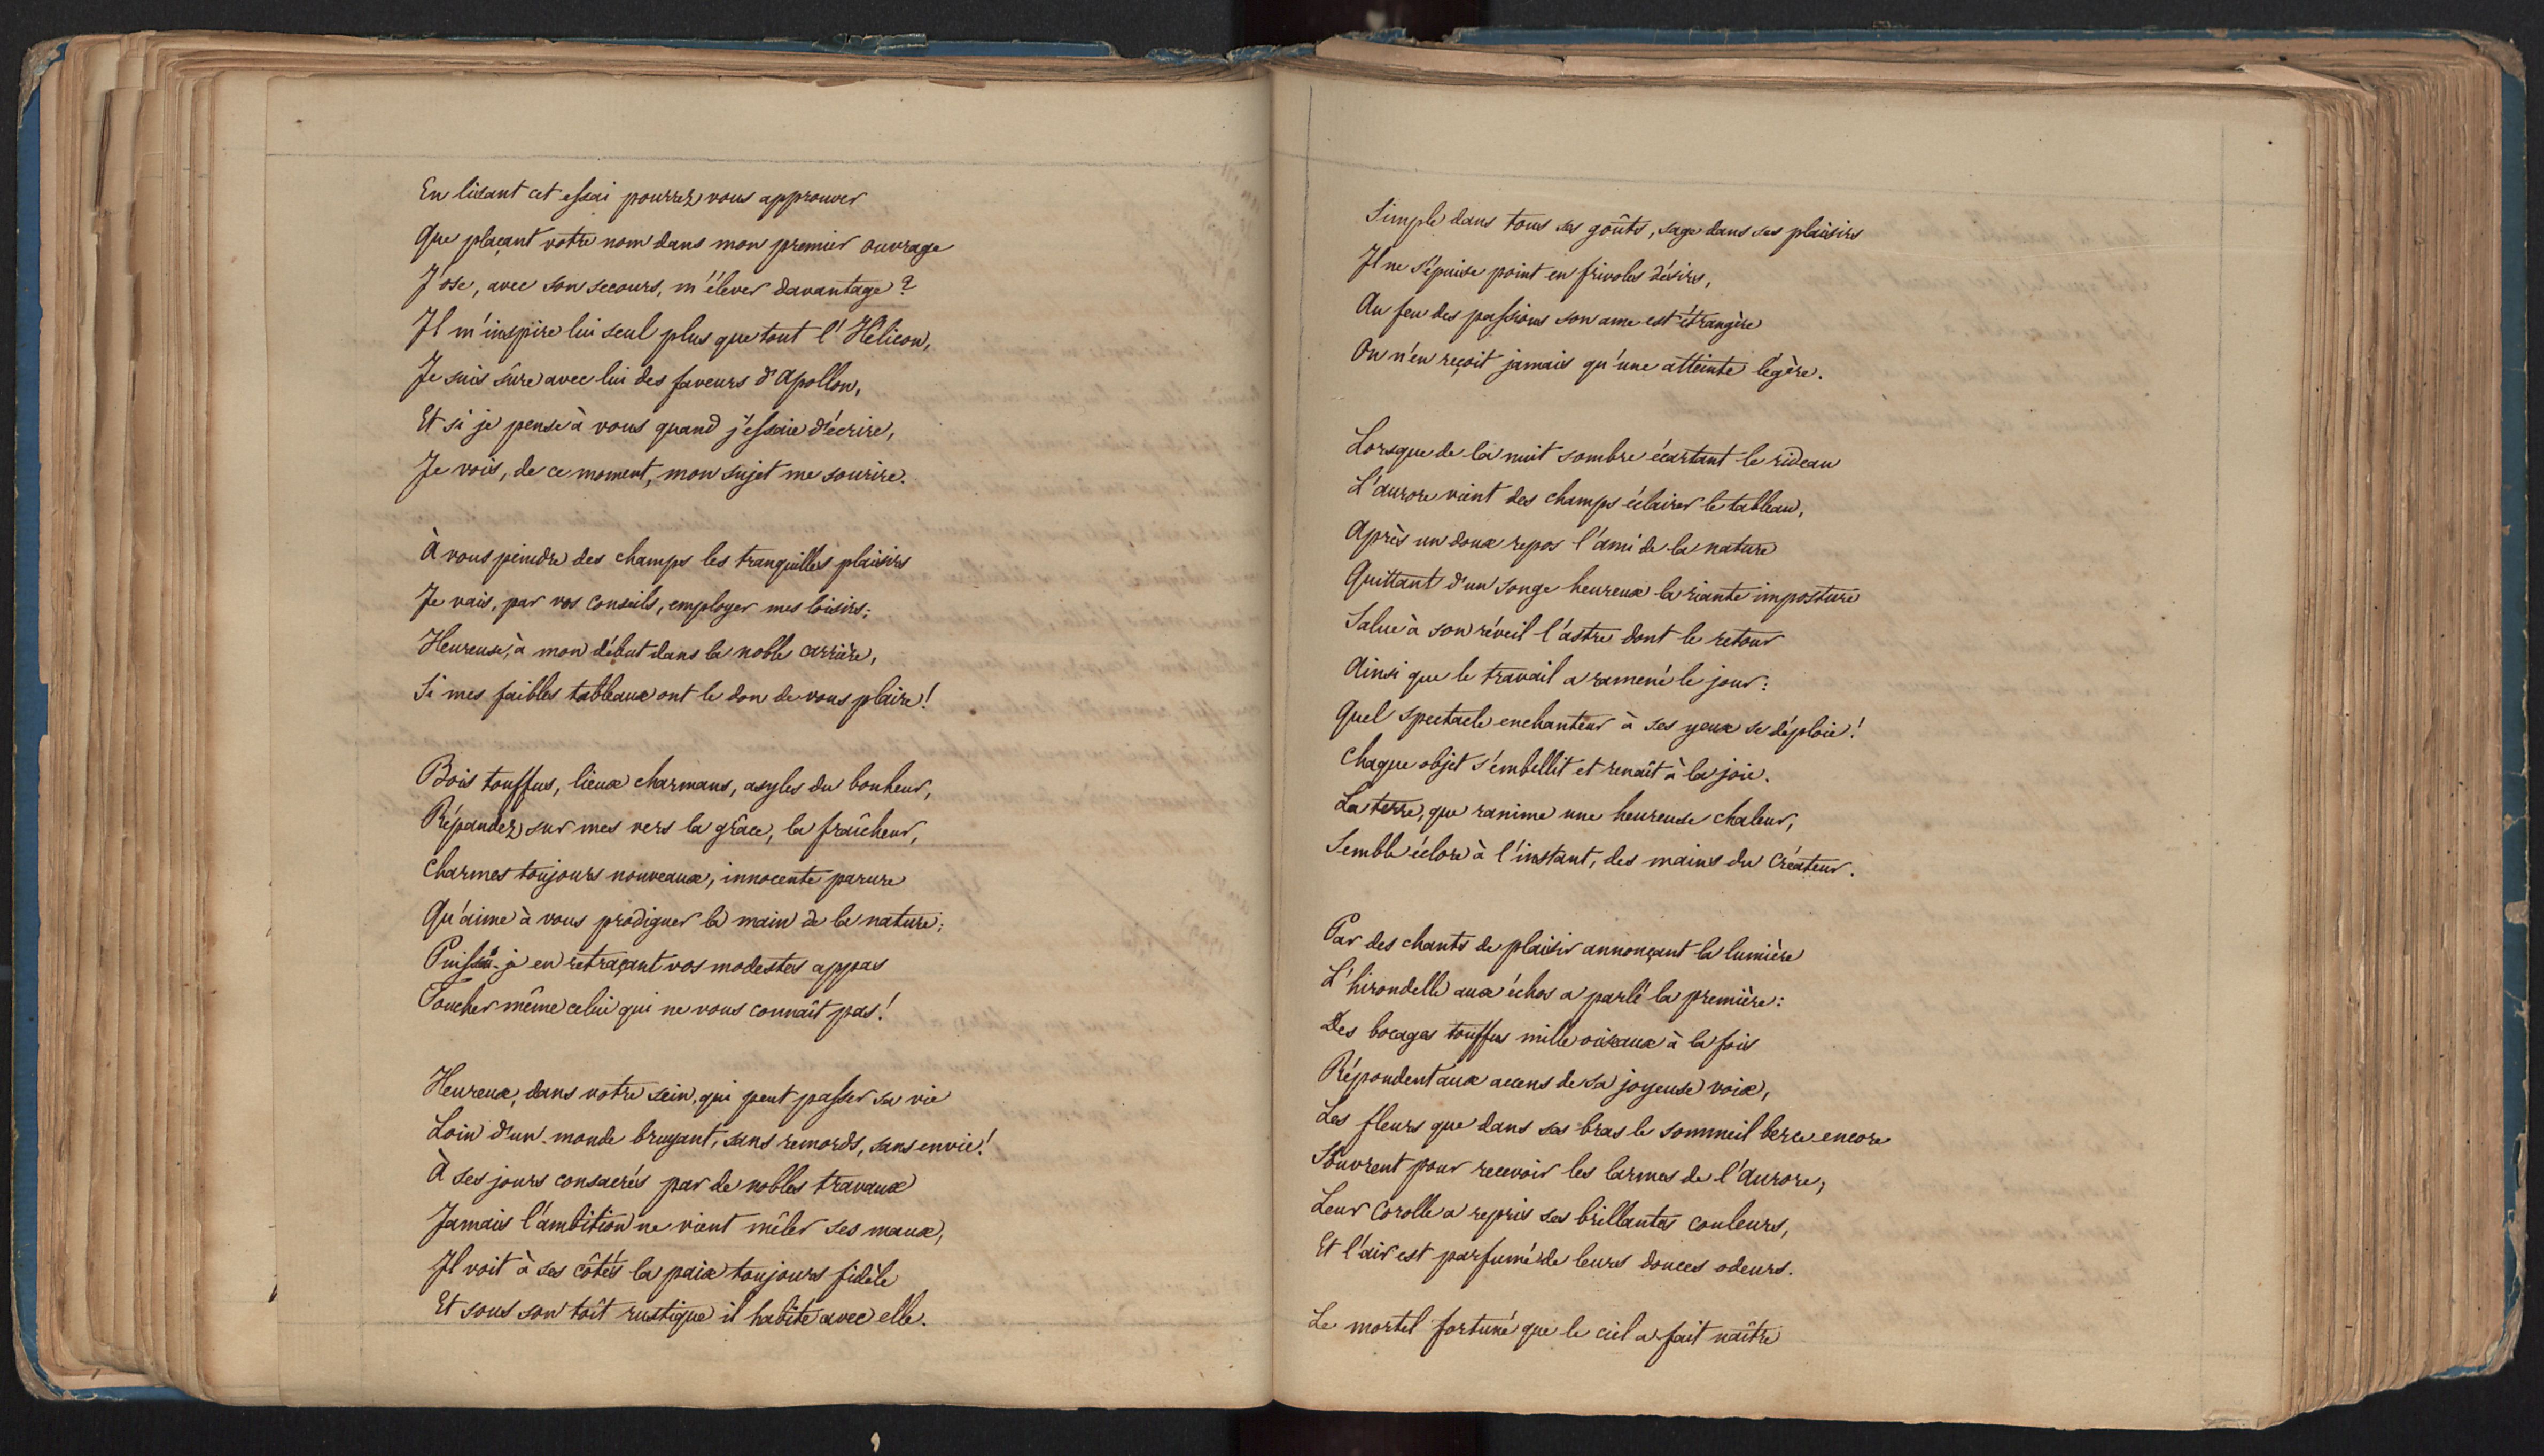 En lisant cet essai pourrez vous approuver
Que plaçant votre nom dans mon premier ouvrage
J'ose, avec son secours, m'élever davantage?
Il m'inspire lui seul plus que tout l'Hélicon,
Je suis sûre avec lui des faveurs d'Apollon,
Et si je pense à vous quand j'essaie d'écrire,
Je vois, de ce moment, mon sujet me sourire.
À vous peindre des champs les tranquilles plaisirs
Je vais, par vos conseils, employer mes loisirs;
Heureuse, à mon début dans la noble carrière,
Si mes faibles tableaux ont le don de vous plaire!
Bois touffus, lieux charmans, asyles du bonheur,
Répandez sur mes vers la grâce, la fraîcheur,
Charmes toujours nouveaux, innocente parure
Qu'aime à vous prodiguer la main de la nature;
Puissé-je en retraçant vos modestes appas
Toucher même celui qui ne vous connaît pas!
Heureux, dans votre sein, qui peut passer sa vie
Loin d'un monde bruyant, sans remords, sans envie!
À ses jours consacrés par de nobles travaux
Jamais l'ambition ne vient mêler ses maux,
Il voit à ses côtés la paix toujours fidèle
Et sous son toît rustique il habite avec elle.
Simple dans tous ses goûts, sage dans ses plaisirs
Il ne s'épuise point en frivoles désirs,
Au feu des passions son ame est étrangère
Ou n'en reçoit jamais qu'une atteinte légère.
Lorsque de la nuit sombre écartant le rideau
L'aurore vient des champs éclairer le tableau,
Après un doux repos l'ami de la nature
Quittant d'un songe heureux la riante imposture
Salue à son réveil l'astre dont le retour
Ainsi que le travail a ramené le jour:
Quel spectacle enchanteur à ses yeux se déploie!
Chaque objet s'embellit et renaît à la joie.
La terre, que ranime une heureuse chaleur,
Semble éclore à l'instant, des mains du Créateur.
Par des chants de plaisir annonçant la lumière
L'hirondelle aux échos a parlé la première:
Des bocages touffus mille oiseaux à la fois
Répondent aux accens de sa joyeuse voix,
Les fleurs que dans ses bras le sommeil berce encore
S'ouvrent pour recevoir les larmes de l'Aurore,
Leur corolle a repris ses brillantes couleurs,
Et l'air est parfumé de leurs douces odeurs.
Le mortel fortuné que le ciel a fait naître